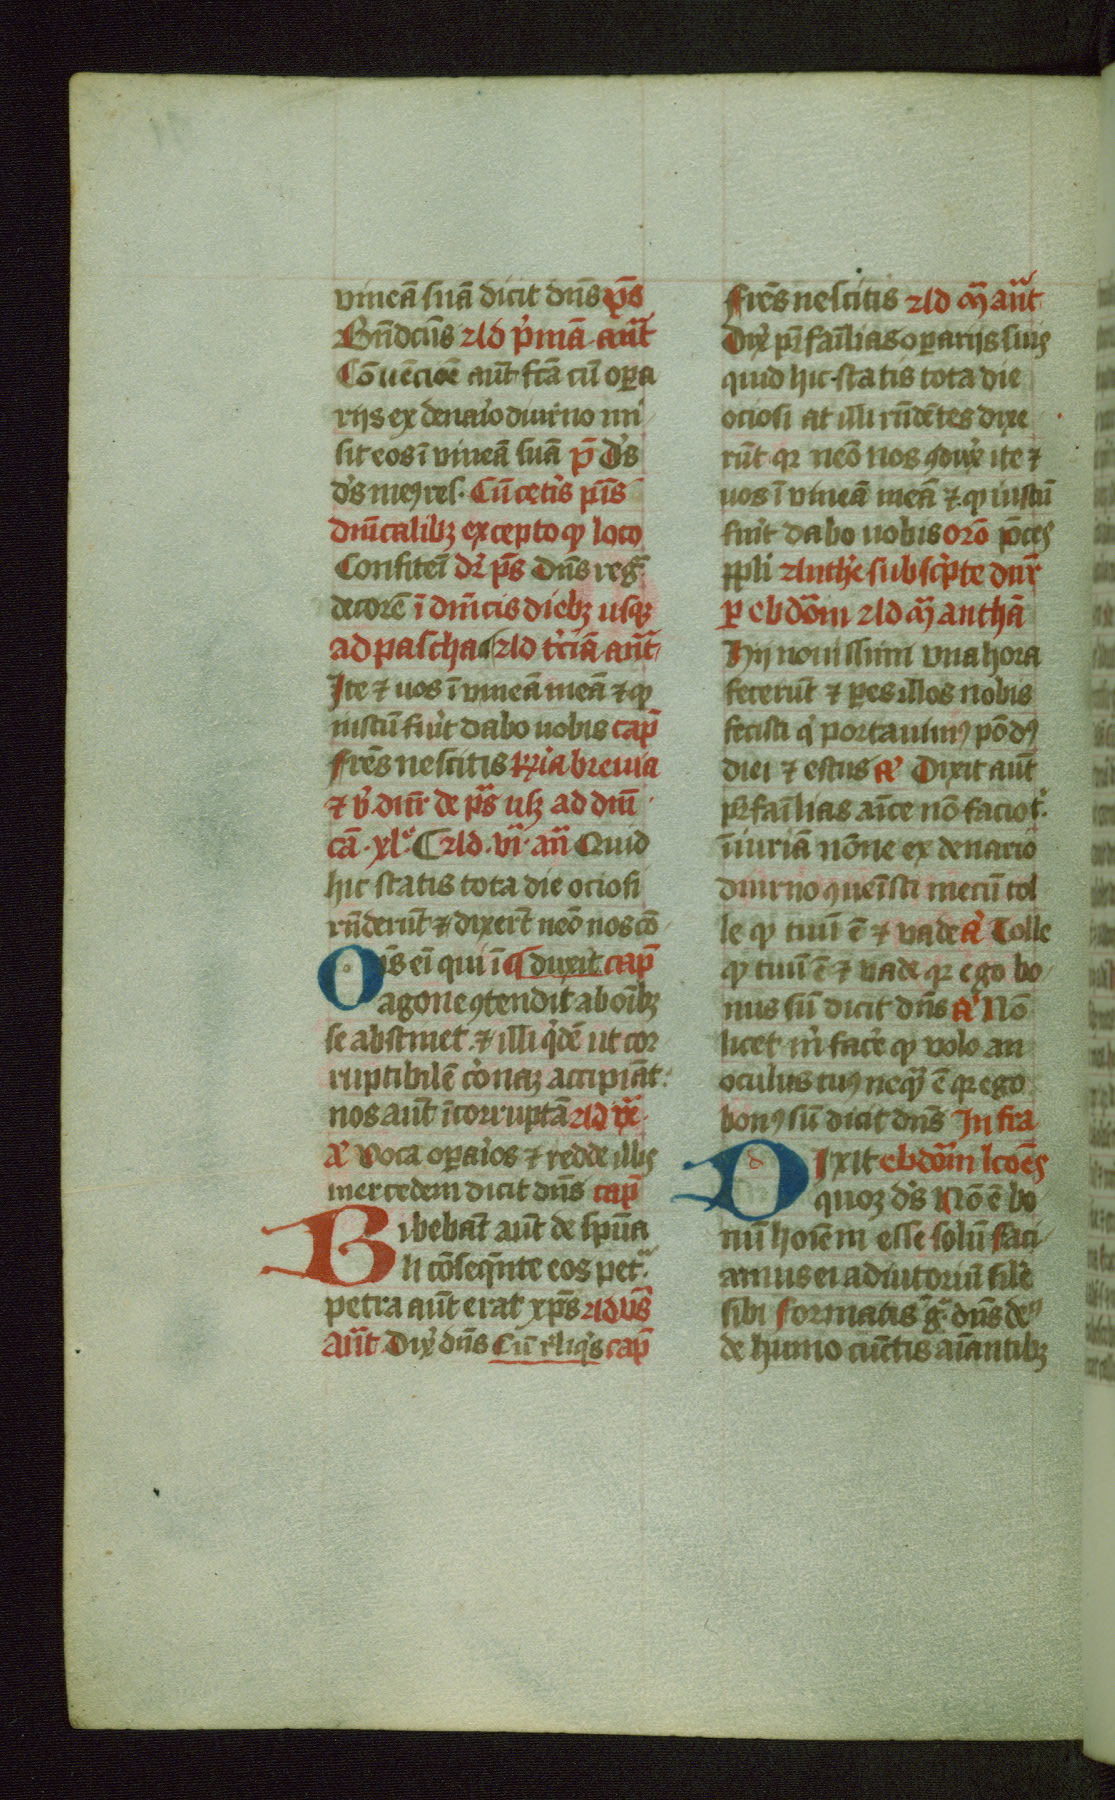 vineā suā dicit dn̄s p̄s
Bn̄dcūs Ad p̓mā an̄t
Cōuēcioē aūt fc̄a cū oꝑa
rijs ex denaīo diurno mi
sit eos ī vineā suā p̄ D̄s
d̄s meꝰ res. Cū cet̓is p̄is
dnīcalibꝫ excepto ꝙ loco
Confiteī dr̄ p̄s Dn̄s reḡ
decorē ī dnīcis diebꝫ usqꝫ
ad pascha Ad t̓ciā an̄t
Ite ⁊ uos ī vineā meā ⁊ ꝙ
iustū fūit dabo uobis cap̄
Fr̄es nescitis breuia
⁊ dicūr de p̄s usqꝫ ad dnī
cā xl Ad vī an̄ Quid
hic statis tota die ociosi
rn̄derūt ⁊ dixert̄ neō nos cō
Oīs eī qui ī duxit cap̄
agone ꝯtendit ab oībꝫ
se abstinet ⁊ illi q̓dē ut cor
ruptibilē c̓onaꝫ accipiāt
nos aūt īcorruptā Ad
A̓ Voca oꝑaīos ⁊ redde illis
mercedem dicit dn̄s cap̄
Bibebāt aūt de spūa
li cōseqn̄te eos pet̄
petra aūt erat xp̄s Ad vs̄
An̄t Dix̄ dn̄s Cū reliq̓s cap̄
Fr̄es nescitis Ad m̄ an̄t
Dix̄ pr̄familias oꝑarijs suis
quid hic statis tota die
ociosi at illi rn̄dētes dixe
rūt qꝛ neō nos ꝯdux̄ ite ⁊
uos ī vineā meā ⁊ ꝙ iustū
fūit dabo uobis Orō p̄ces
ppli Antħe subsc̓pte dn̄r
ꝑ ebdōm Ad m̄ anthā
Hij nouissimi vna hora
fecerūt ⁊ ꝑes illos nobis
fecisti q̓ portauimꝰ pōdꝰ
diei ⁊ estus A̓ Dixit aūt
pr̄familias aīce nō facio t̓
īiuriā nōne ex denario
diurno ꝯueīsti mecū tol
le ꝙ tuū ē ⁊ vade A̓ Tolle
ꝙ tuū ē ⁊ vade qꝛ ego bo
nus sū dicit dn̄s A̓ Nō
licet m̓ fac̓e ꝙ volo an
oculus tuꝰ neqꝫ̄ ē qꝛ ego
bonꝰ sū dicit dn̄s Infra
Dixit ebdōm lcōēs
quoꝫ d̄s Nō ē bo
nū hoīem esse solū faci
amus ei adiutoriū sīle
sibi Formatis g̓ dn̄s deꝰ
de humo cūctis aīantibꝫ